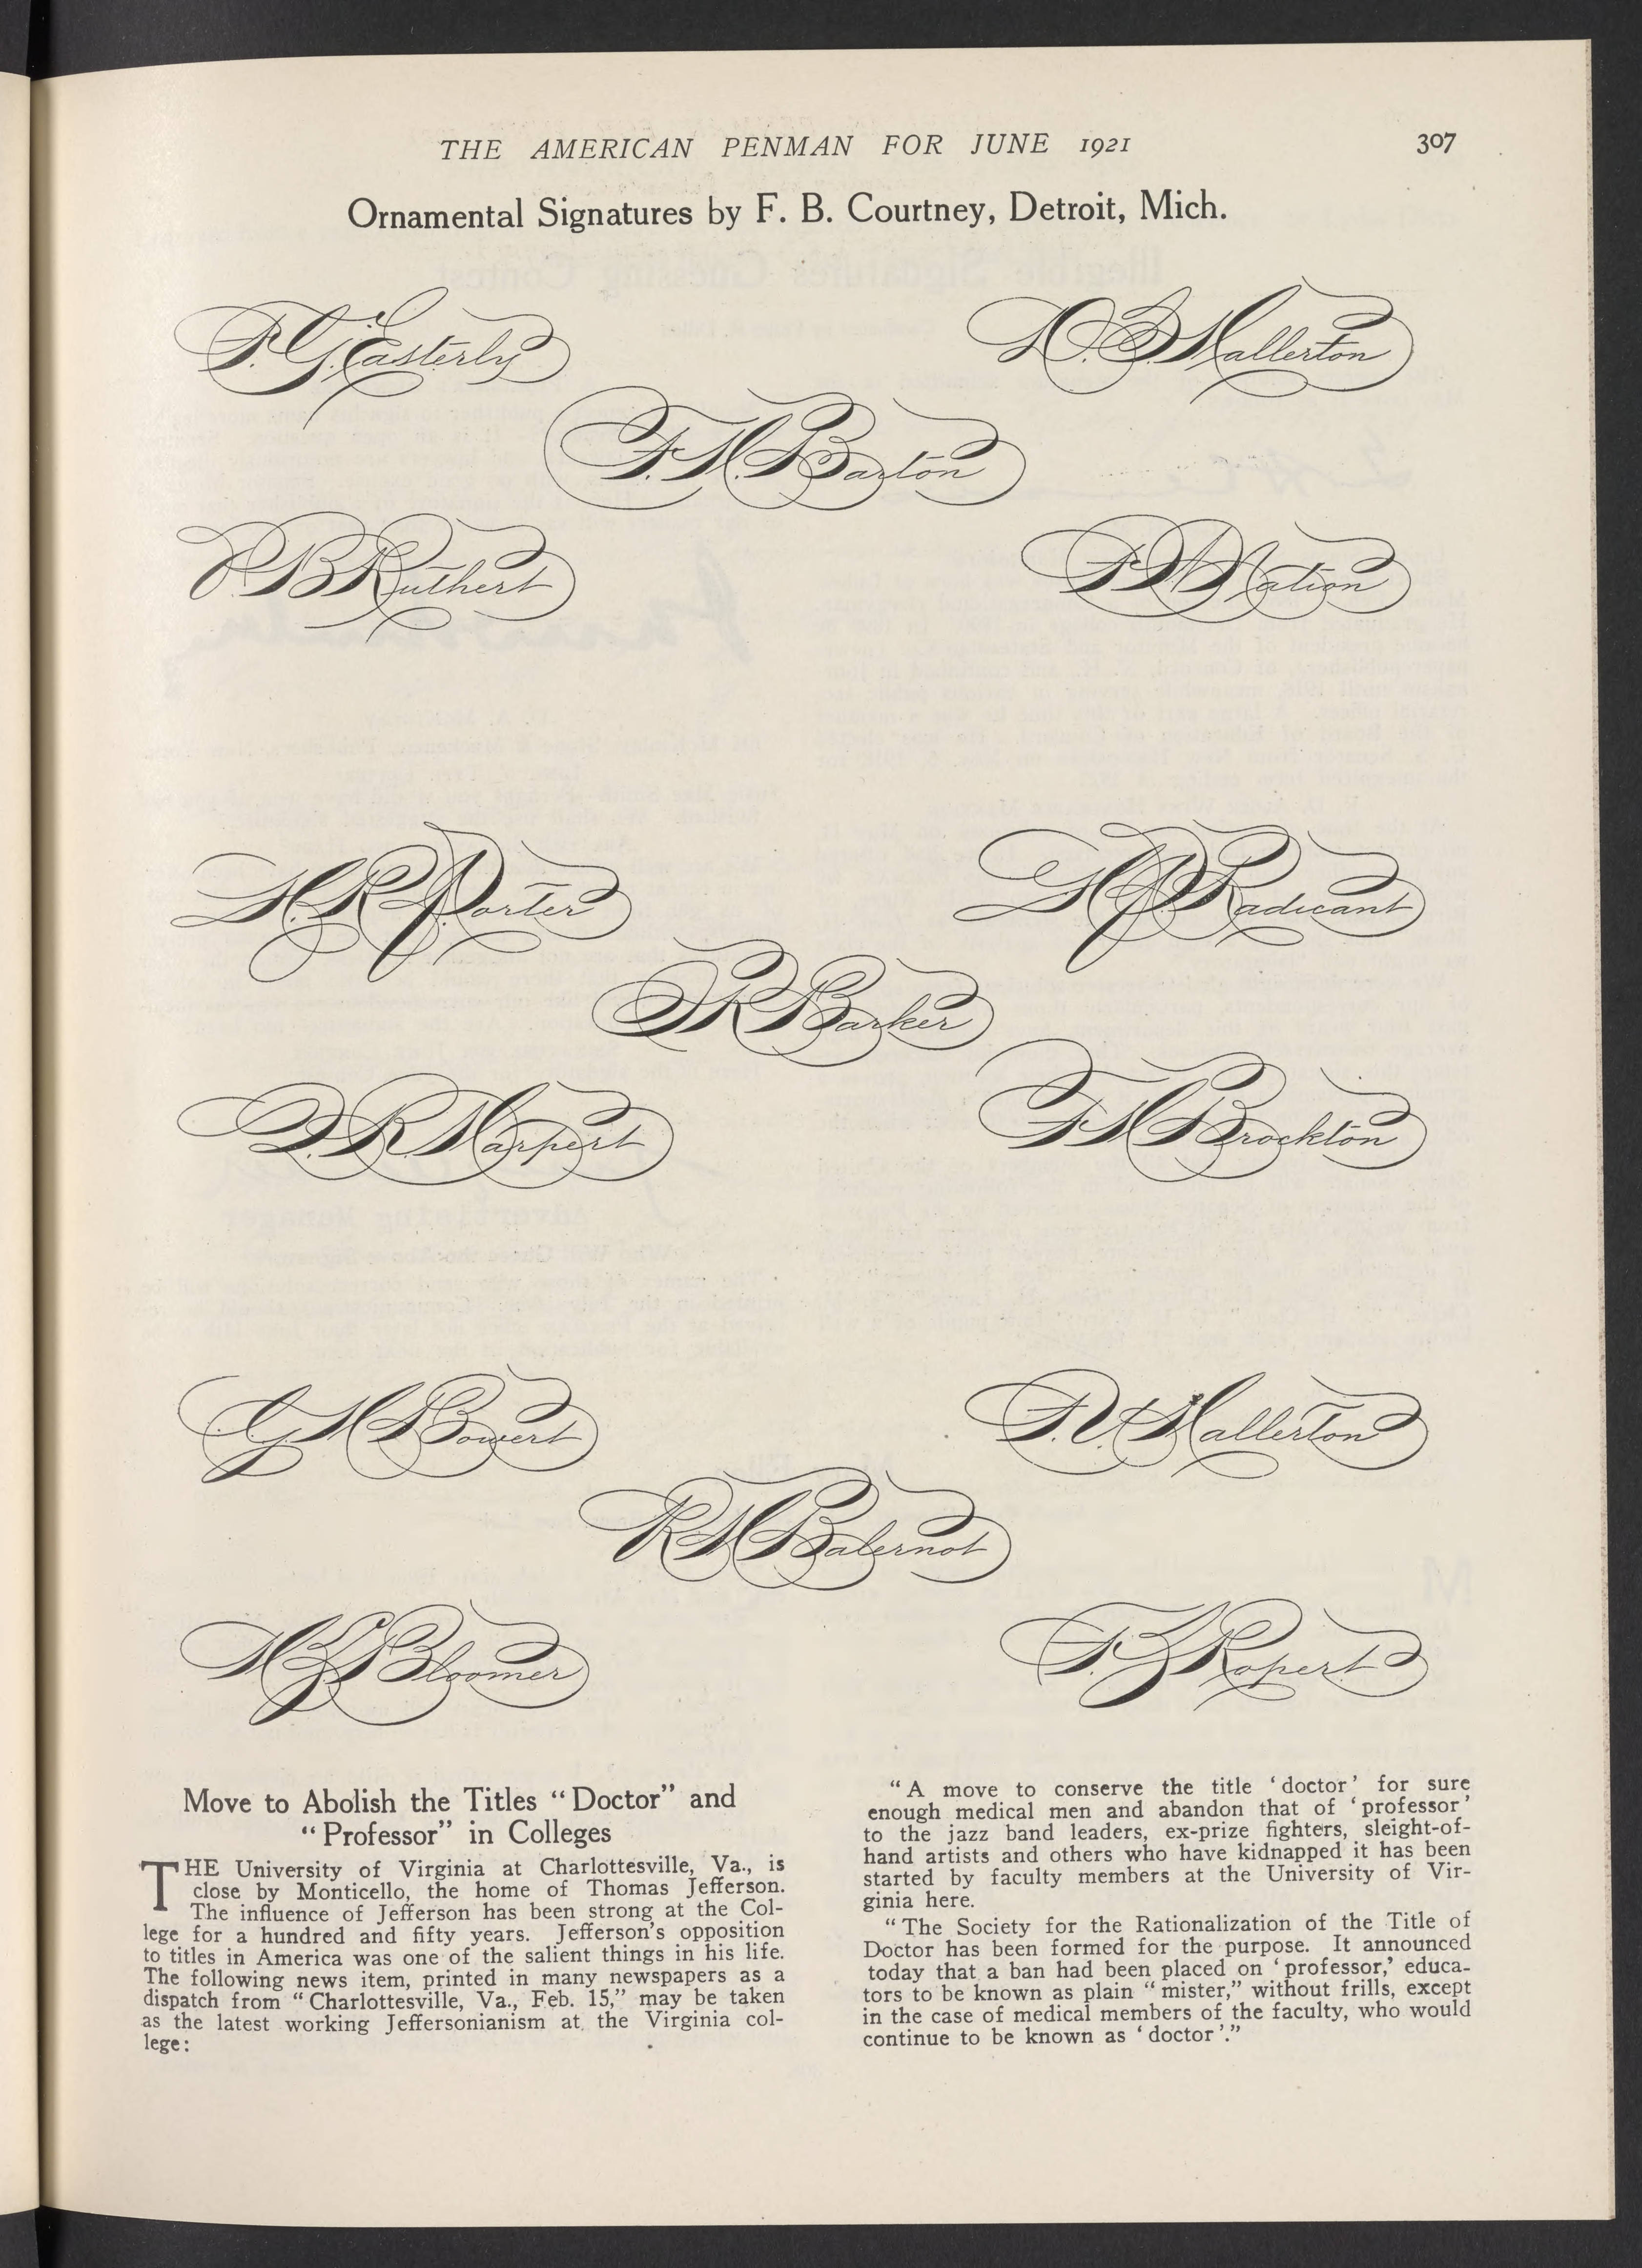 THE AMERICAN PENMAN FOR JUNE 1921 307
Ornamental Signatures by F. B. Courtney, Detroit, Mich.
F. G. Easterly
D. S. Hallerton
F. H. Barton
P. B. Ruthert
F. W. Nation
H. R. Porter
Radicant
Barker
D. R. Harpert
F. H. Brockton
G. H. Bowert
Hallerton
R. H. Balernot
Bloomer
F. Z. Ropert
Move to Abolish the Titles “Doctor” and
“Professor” in Colleges
THE University of Virginia at Charlottesville, Va., is
close by Monticello, the home of Thomas Jefferson.
The influence of Jefferson has been strong at the Col-
lege for a hundred and fifty years. Jefferson's opposition
to titles in America was one of the salient things in his life.
The following news item, printed in many newspapers as a
dispatch from “Charlottesville, Va., Feb. 15,” may be taken
as the latest working Jeffersonianism at the Virginia col-
lege:
“A move to conserve the title ‘doctor’ for sure
enough medical men and abandon that of ‘professor’
to the jazz band leaders, ex-prize fighters, sleight-of-
hand artists and others who have kidnapped it has been
started by faculty members at the University of Vir-
ginia here.
“The Society for the Rationalization of the Title of
Doctor has been formed for the purpose. It announced
today that a ban had been placed on ‘professor,’ educa-
tors to be known as plain “mister,” without frills, except
in the case of medical members of the faculty, who would
continue to be known as ‘doctor’.”